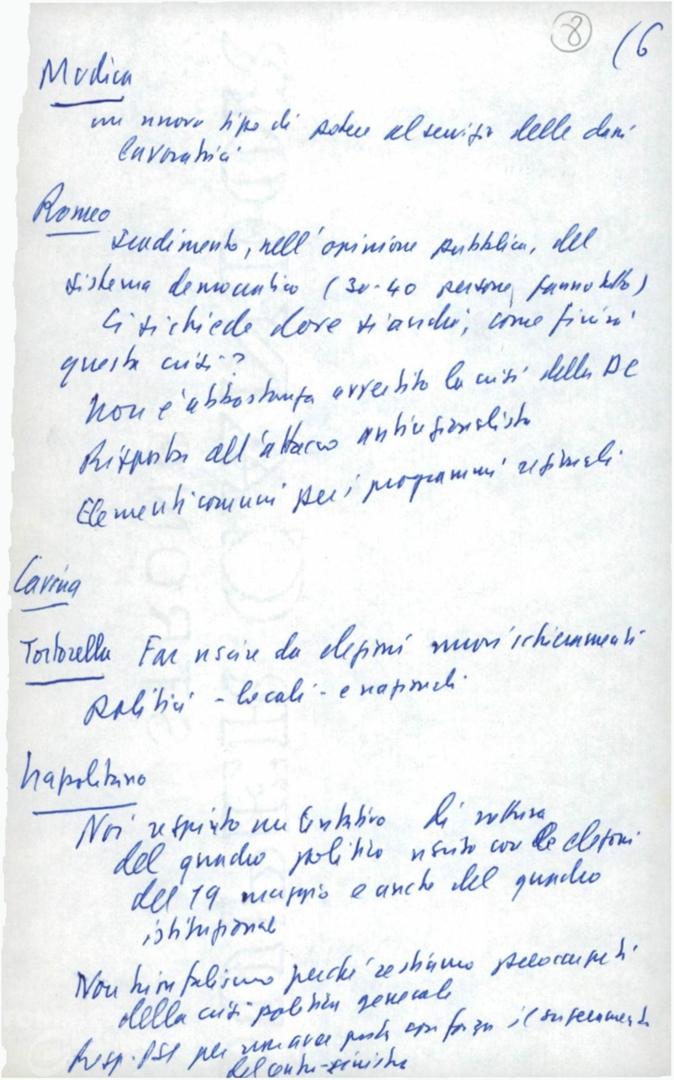 8 16
Modica
un nuovo tipo di potere al servizio delle classi
lavoratrici
Romeo
scadimento, nell'opinione pubblica, del
sistema democratico (30-40 persone fanno tutto)
Ci si chiede dove si andrà, come finirà
questa crisi?
Non è abbastanza avvertito la crisi della DC
Risposta all'attacco antiregionalista
Elementi comuni per i programmi regionali
Cavina
Tortorella Far uscire da elezioni nuovi schieramenti
politici - locali - e nazionali
Napolitano
Noi respinto un tentativo di rottura
del quadro politico uscito con le elezioni
del 19 maggio e anche del quadro
istituzionale
Non trionfalismo perché restiamo preoccupati
della crisi politica generale
Resp. PSI per con forza il superamento
del centro-sinistra